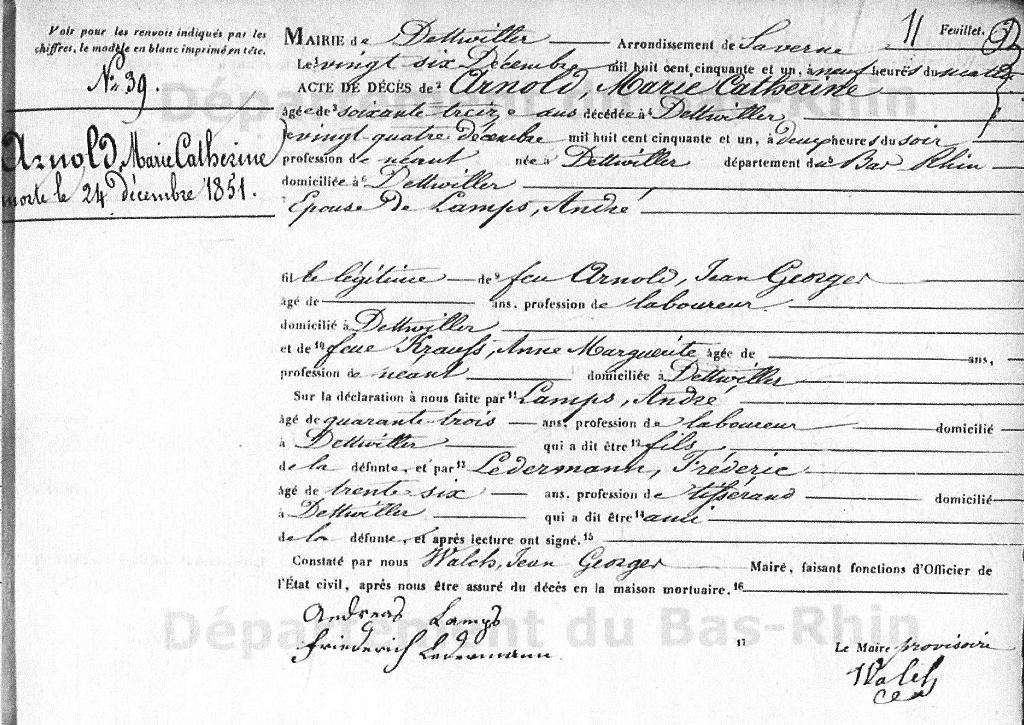 Voir pour les renvois indiqués par les
chiffres, le modèle en blanc imprimé en tête.
N.º 39.
Arnold, Marie Catherine
morte le 24 décembre 1851.
11 Feuillet.
MAIRIE de Dettwiller Arrondissement de Saverne
Le vingt six Décembre mil huit cent cinquante et un, à neuf heures du matin
ACTE DE DÉCÈS de ² Arnold, Marie Catherine
âgée de ³ soixante treize ans décédée à ⁴ Dettwiller
le vingt quatre décembre mil huit cent cinquante et un, à deux heures du soir
profession de néant née à Dettwiller département du ⁵ Bas Rhin
domiciliée à ⁶ Dettwiller
Epouse de Lamps, André
fille légitime de ⁹ feu Arnold, Jean George
âgé de ans, profession de laboureur
domicilié à Dettwiller
et de ¹⁰ feue Krauss, Anne Marguerite âgée de ans,
profession de néant domiciliée à Dettwiller
Sur la déclaration à nous faite par ¹¹ Lamps, André
âgé de quarante-trois ans, profession de laboureur domicilié
à Dettwiller qui a dit être ¹² fils
de la défunte, et par ¹³ Ledermann, Fréderic
âgé de trente six ans, profession de tisserand domicilié
à Dettwiller qui a dit être ¹⁴ ami
de la défunte, et après lecture ont signé. ¹⁵
Constaté par nous Walch, Jean George Maire, faisant fonctions d'Officier de
l'État civil, après nous être assuré du décès en la maison mortuaire. ¹⁶
Andreas Lamps
Friederich Ledermann
¹⁷ Le Maire provisoire
Walch
Département du Bas-Rhin
Département du Bas-Rhin